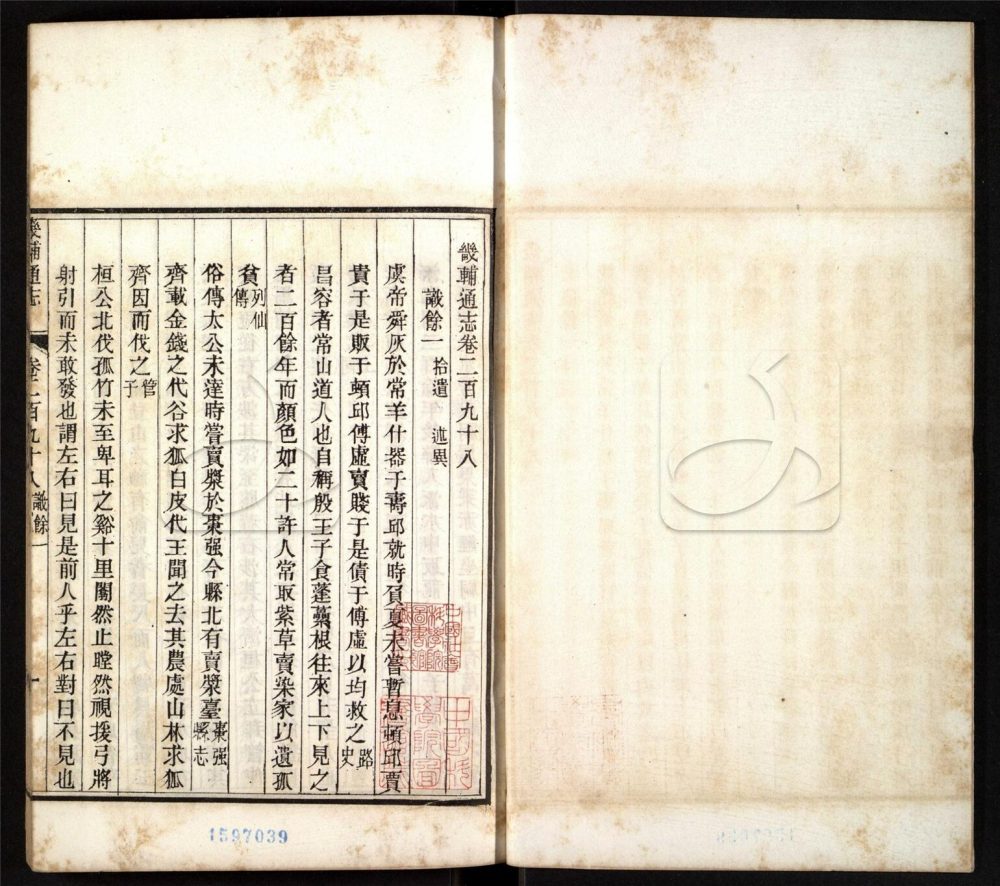 畿輔通志卷二百九十八
識餘一 拾遺 述異
虞帝舜灰於常羊什器于壽邱就時負夏未嘗暫息頓邱賣
貴于是販于頓邱傅虛賣賤于是債于傅虛以均救之路史
昌容者常山道人也自稱殷王子食蓬蔂根往來上下見之
者二百餘年而顏色如二十許人常取紫草賣染家以遺孤
貧列仙傳
俗傳太公未達時嘗賣漿於棗强今縣北有賣漿臺棗强縣志
齊載金錢之代谷求狐白皮代王聞之去其農處山林求狐
齊因而伐之管子
桓公北伐孤竹未至卑耳之谿十里闟然止瞠然視援弓將
射引而未敢發也謂左右曰見是前人乎左右對曰不見也
畿輔通志 卷二百九十八 識餘一
1597039